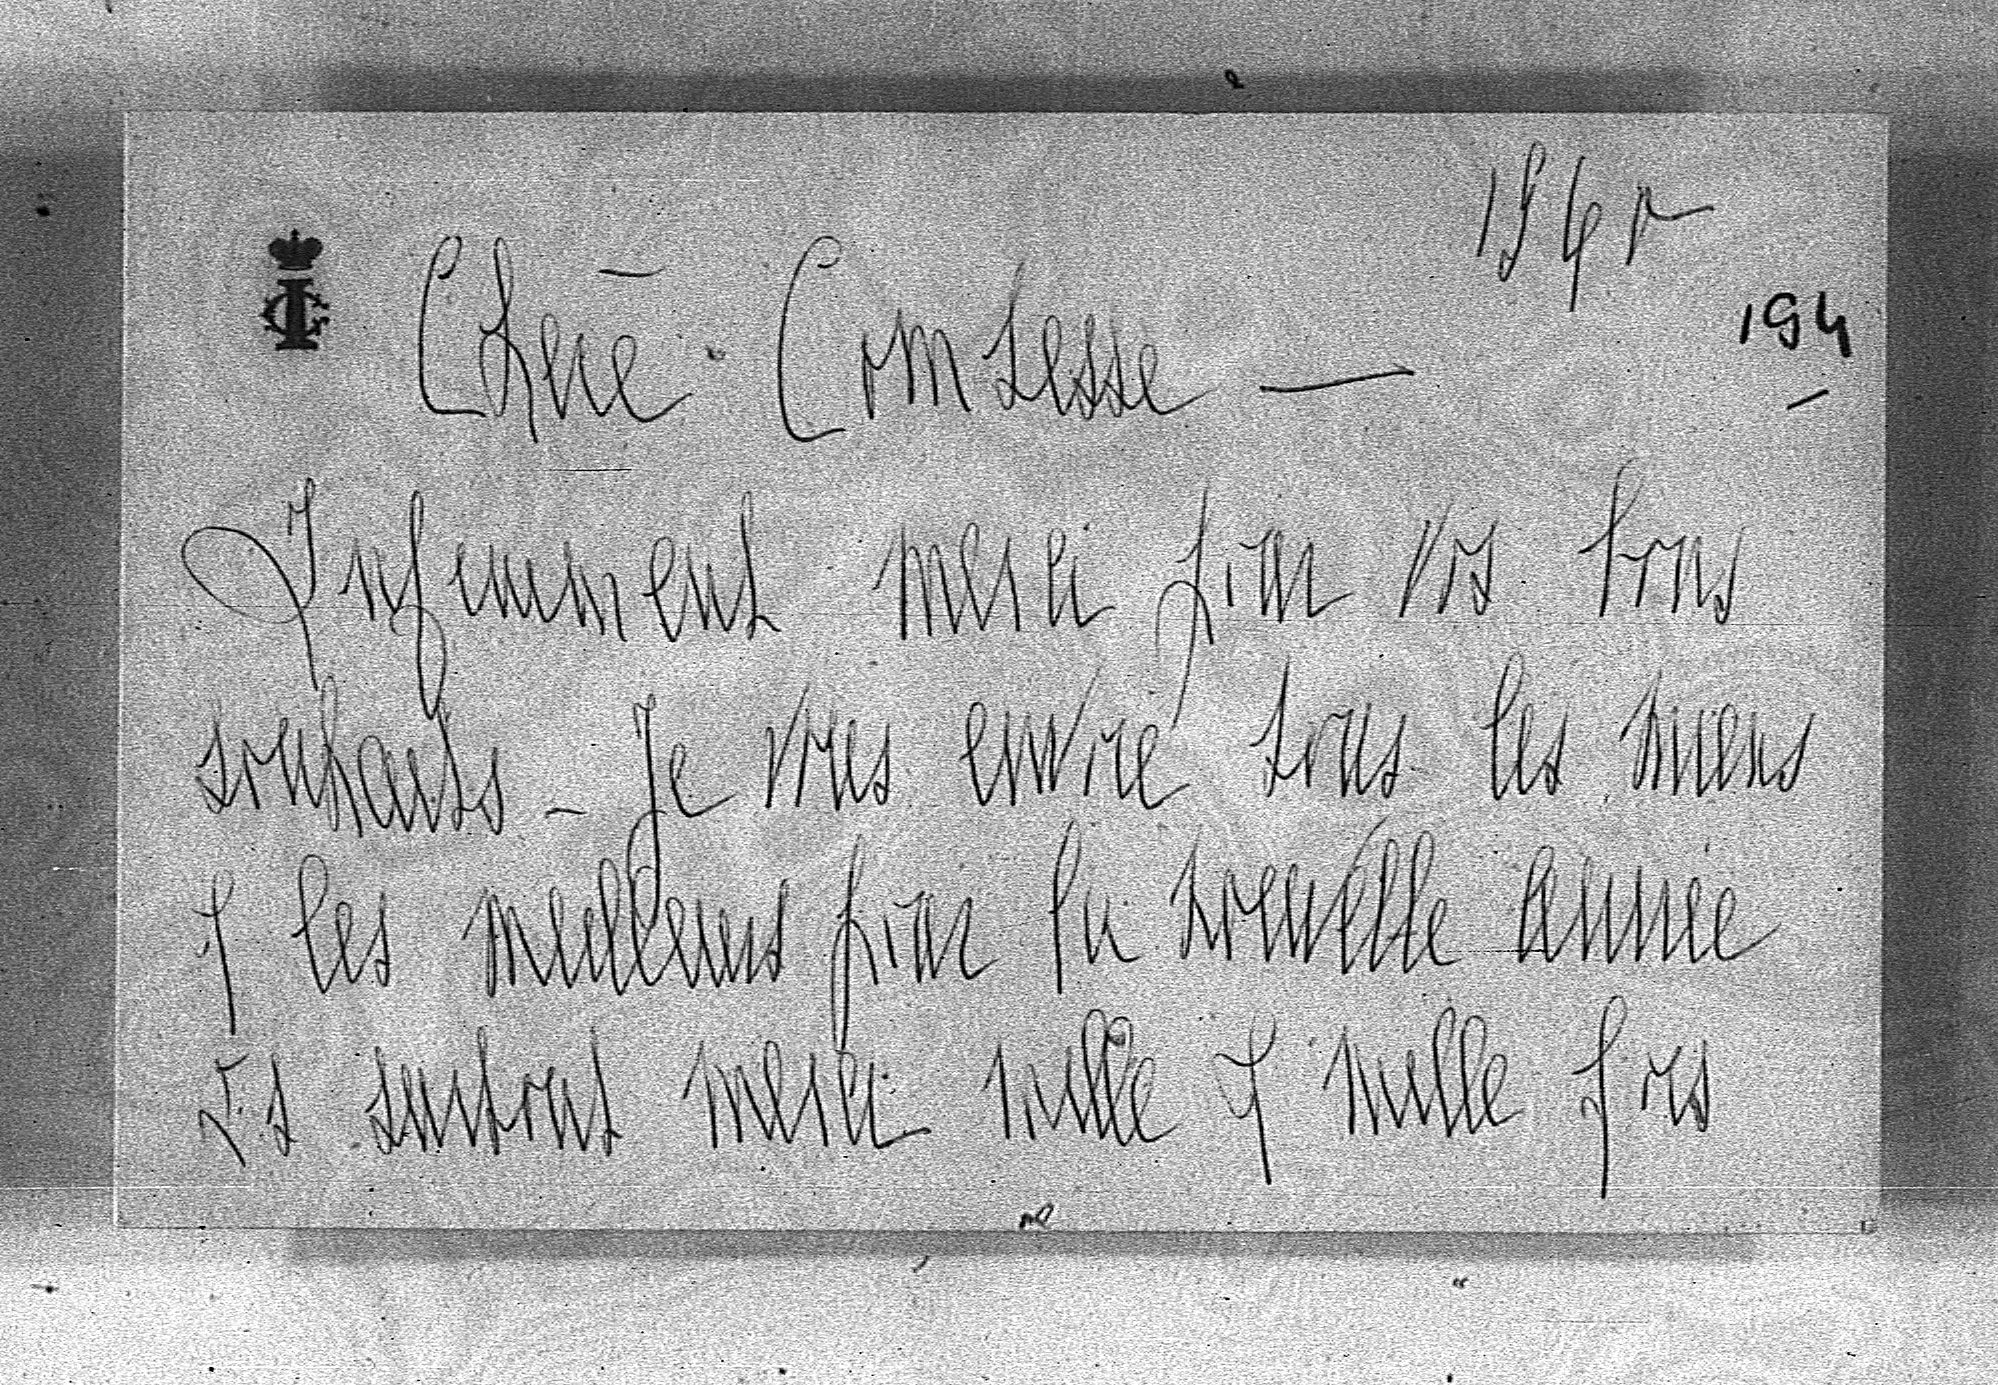 194
Chère Comtesse —
Infiniment merci pour vos bons
souhaits - Je vous envoie tous les miens
& les meilleurs pour la nouvelle année
Et surtout merci mille & mille fois